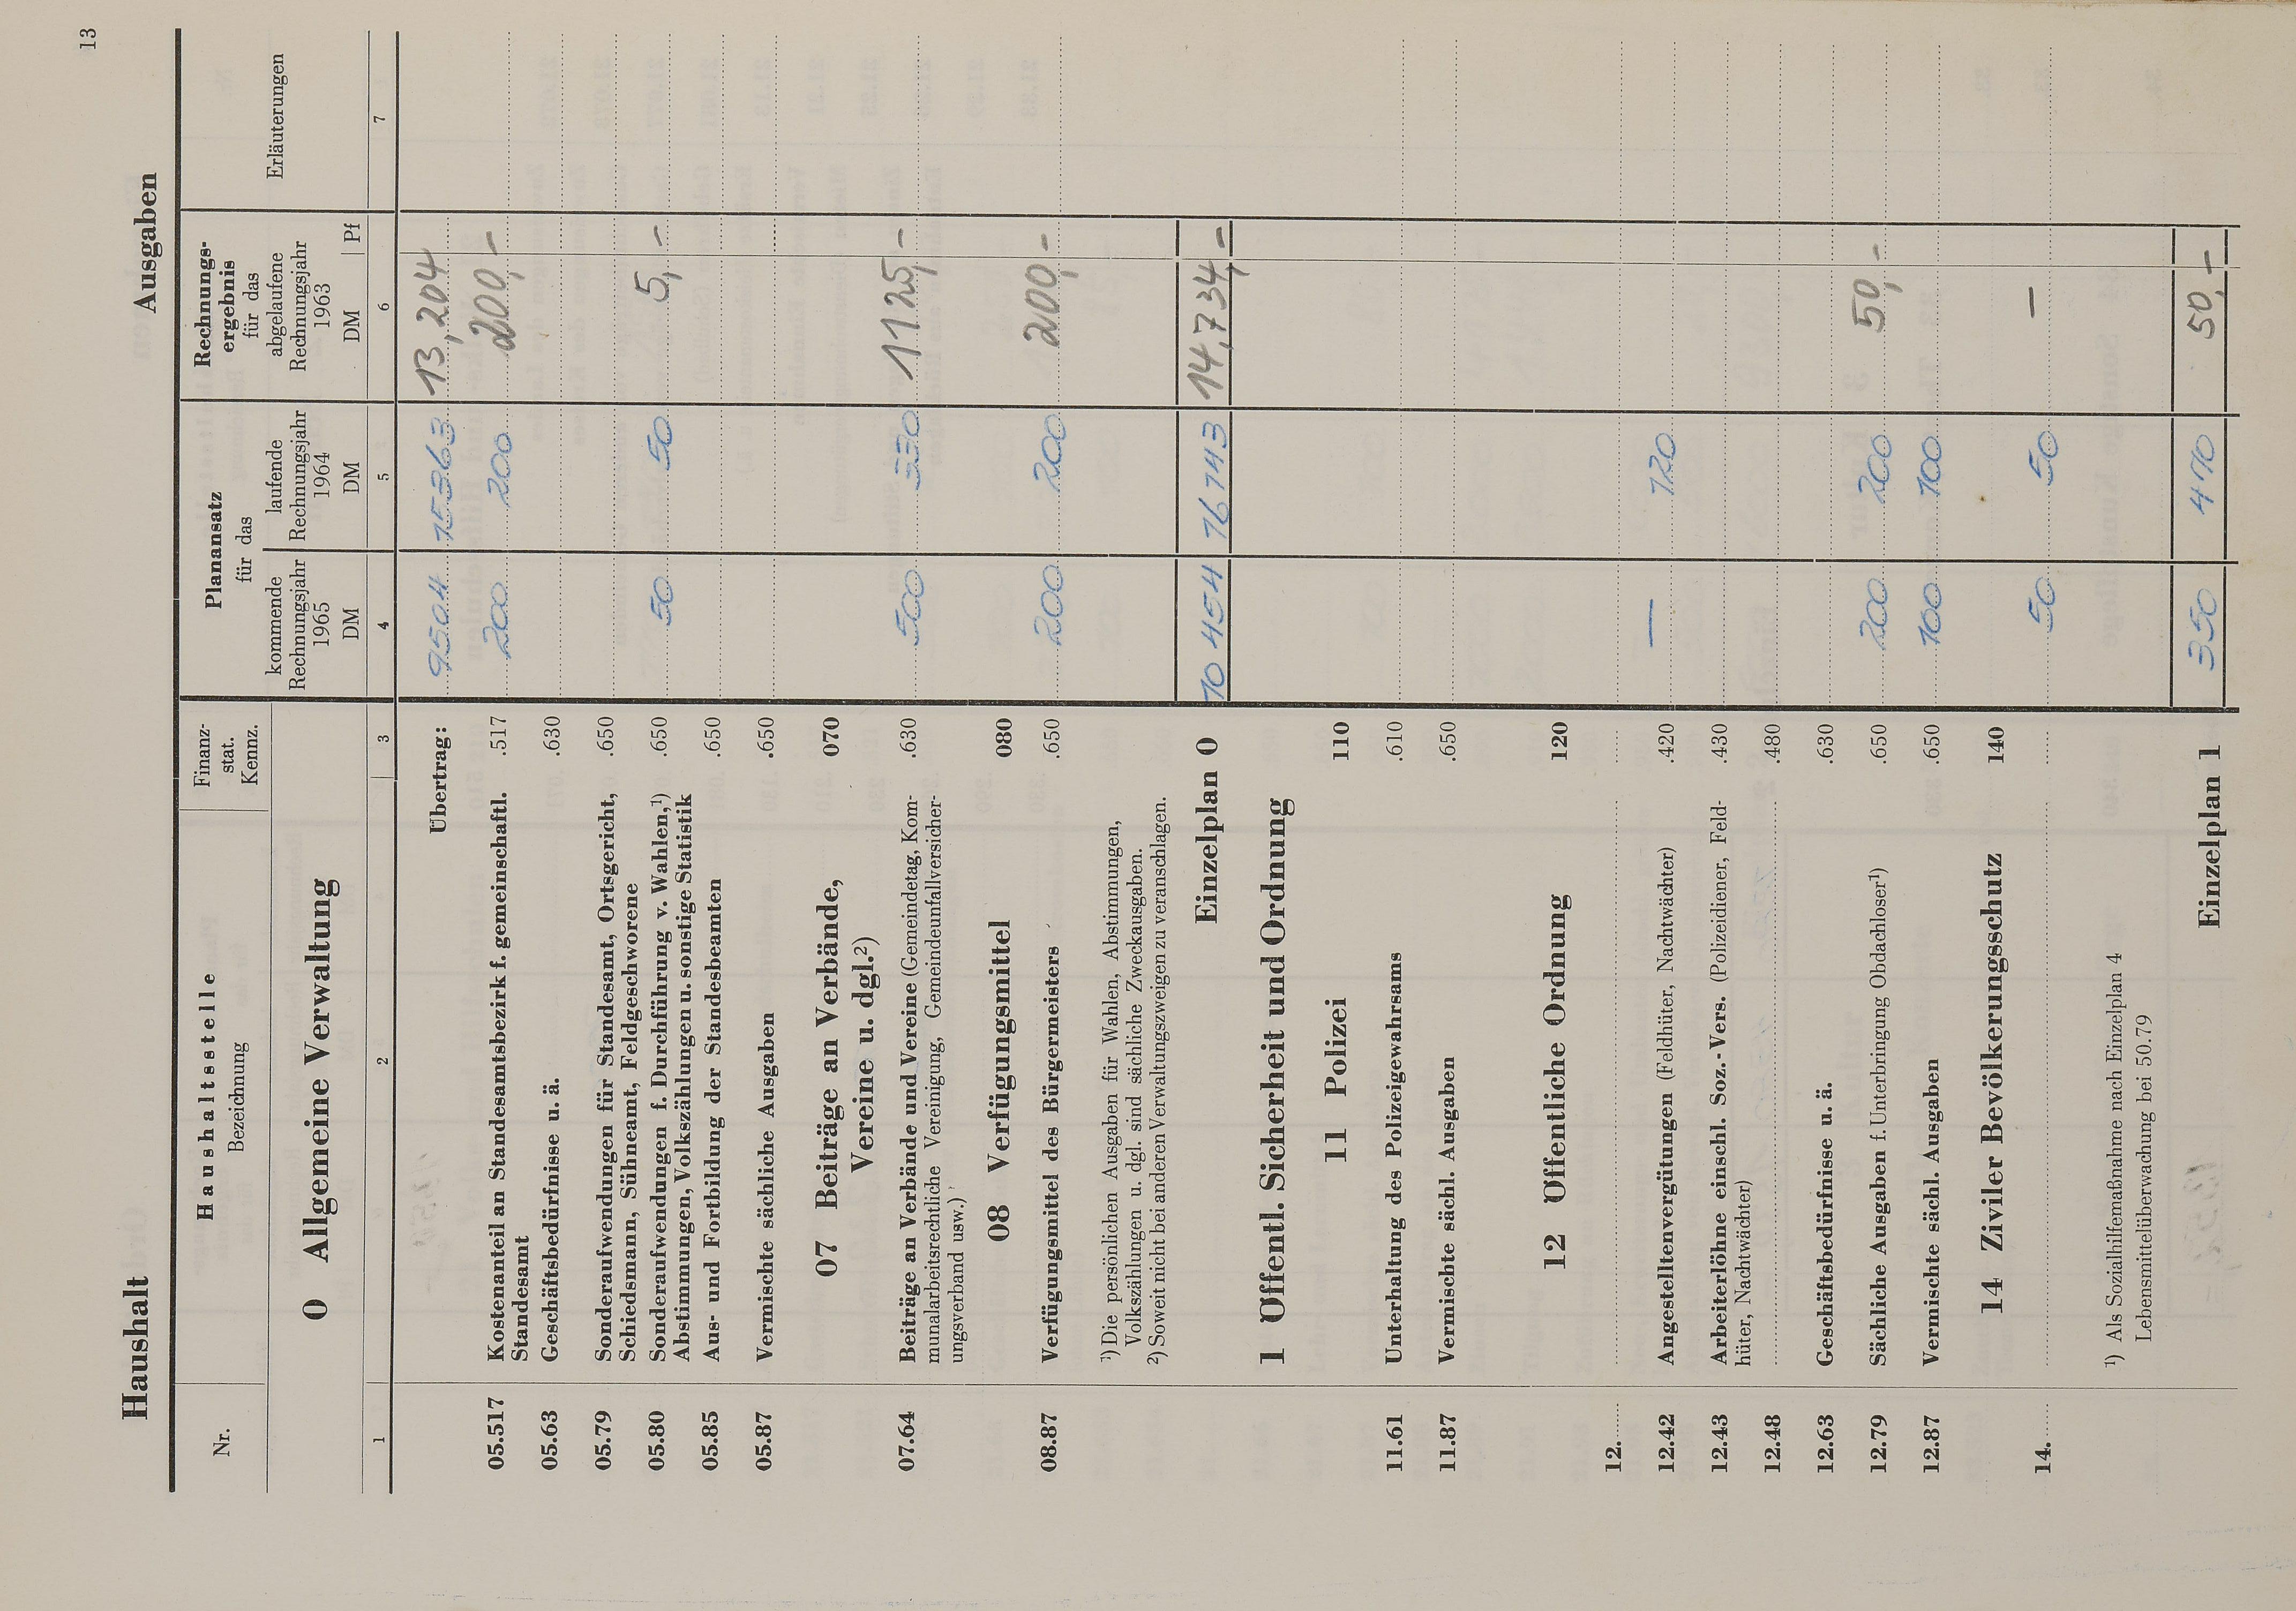 13
Haushalt
Ausgaben
Nr.
Haushaltsstelle
Bezeichnung
Finanz-
stat.
Kennz.
Planansatz
für das
kommende
Rechnungsjahr
1965
DM
laufende
Rechnungsjahr
1964
DM
Rechnungs-
ergebnis
für das
abgelaufene
Rechnungsjahr
1963
DM Pf
Erläuterungen
0 Allgemeine Verwaltung
1 2 3 4 5 6 7
Übertrag: 9504 15363 13,204
05.517 Kostenanteil an Standesamtsbezirk f. gemeinschaftl. .517 200 200 200,–
Standesamt
05.63 Geschäftsbedürfnisse u. ä. .630
05.79 Sonderaufwendungen für Standesamt, Ortsgericht, .650
Schiedsmann, Sühneamt, Feldgeschworene
05.80 Sonderaufwendungen f. Durchführung v. Wahlen,¹) .650 50 50 5,–
Abstimmungen, Volkszählungen u. sonstige Statistik
05.85 Aus- und Fortbildung der Standesbeamten .650
05.87 Vermischte sächliche Ausgaben .650
07 Beiträge an Verbände, 070
Vereine u. dgl.²)
07.64 Beiträge an Verbände und Vereine (Gemeindetag, Kom- .630 500 930 1125,–
munalarbeitsrechtliche Vereinigung, Gemeindeunfallversicher-
ungsverband usw.)
08 Verfügungsmittel 080
08.87 Verfügungsmittel des Bürgermeisters .650 200 200 200,–
¹) Die persönlichen Ausgaben für Wahlen, Abstimmungen,
Volkszählungen u. dgl. sind sächliche Zweckausgaben.
²) Soweit nicht bei anderen Verwaltungszweigen zu veranschlagen.
Einzelplan 0 10 454 16 743 14,734,–
1 Öffentl. Sicherheit und Ordnung
11 Polizei 110
11.61 Unterhaltung des Polizeigewahrsams .610
11.87 Vermischte sächl. Ausgaben .650
12 Öffentliche Ordnung 120
12.
12.42 Angestelltenvergütungen (Feldhüter, Nachtwächter) .420 — 120
12.43 Arbeiterlöhne einschl. Soz.-Vers. (Polizeidiener, Feld- .430
hüter, Nachtwächter)
12.48 .480
12.63 Geschäftsbedürfnisse u. ä. .630
12.79 Sächliche Ausgaben f. Unterbringung Obdachloser¹) .650 200 200 50,–
12.87 Vermischte sächl. Ausgaben .650 100 100
14 Ziviler Bevölkerungsschutz 140
14. 50 50 –
¹) Als Sozialhilfemaßnahme nach Einzelplan 4
Lebensmittelüberwachung bei 50.79
Einzelplan 1 350 470 50,–